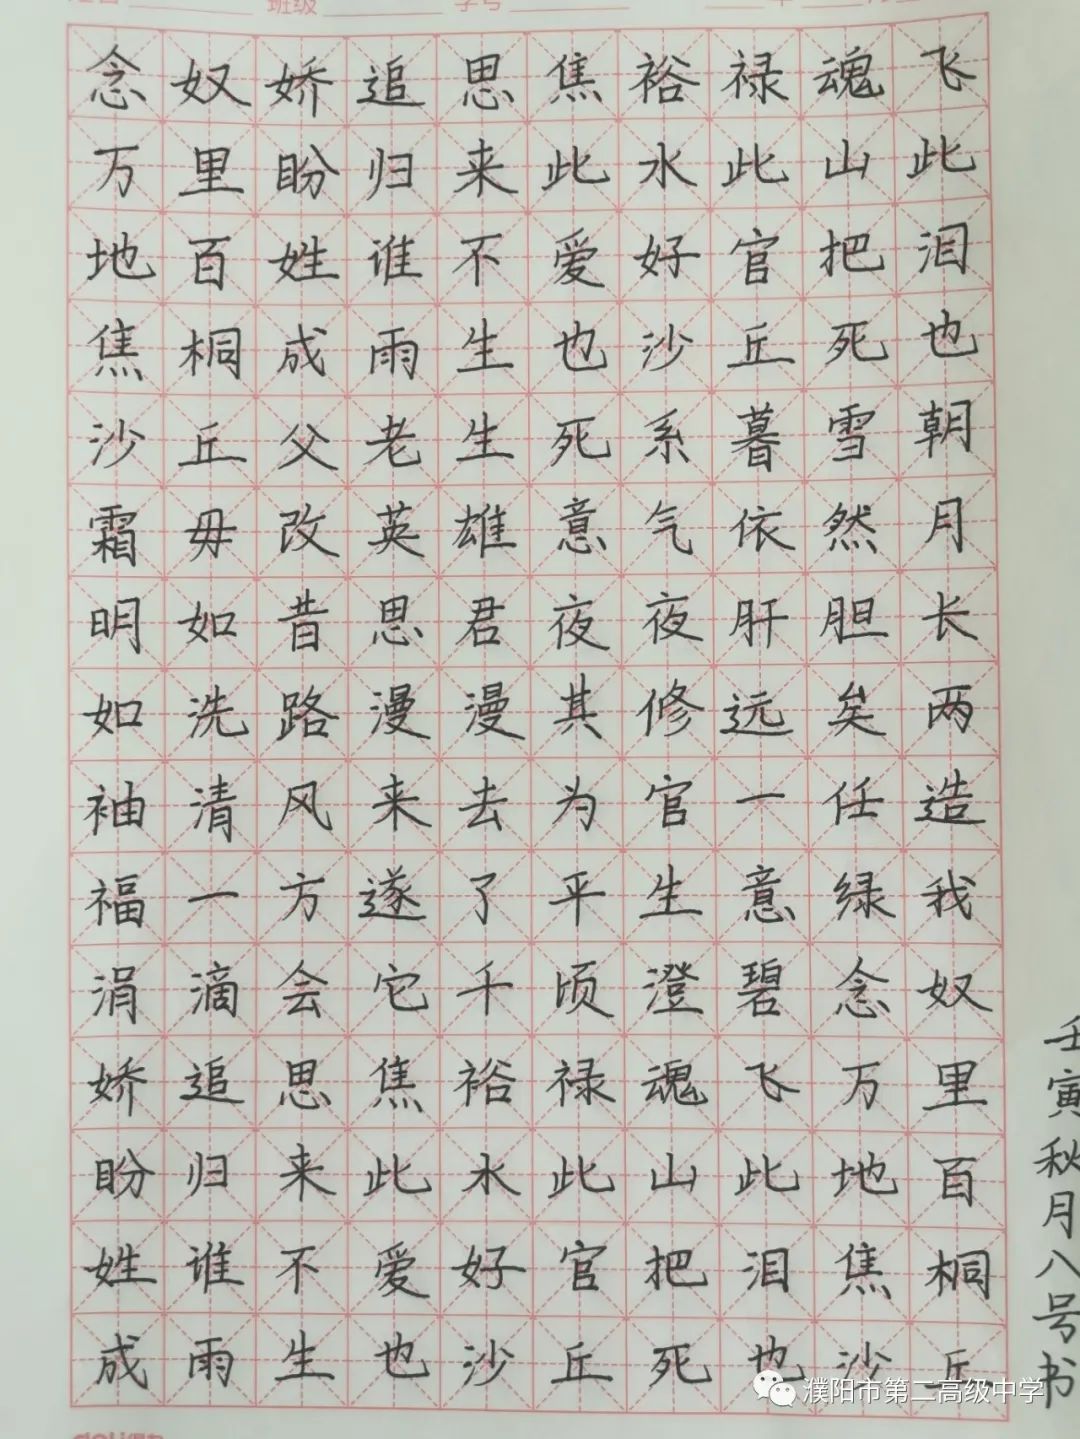 班级
学号
念奴娇追思焦裕禄魂飞
万里盼归来此水此山此
地百姓谁不爱好官把泪
焦桐成雨生也沙丘死也
沙丘父老生死系暮雪朝
霜毋改英雄意气依然月
明如昔思君夜夜肝胆长
如洗路漫漫其修远矣两
袖清风来去为官一任造
福一方遂了平生意绿我
涓滴会它千顷澄碧念奴
娇追思焦裕禄魂飞万里
盼归来此水此山此地百
姓谁不爱好官把泪焦桐
成雨生也沙丘死也沙丘
壬寅秋月八号书
濮阳市第二高级中学